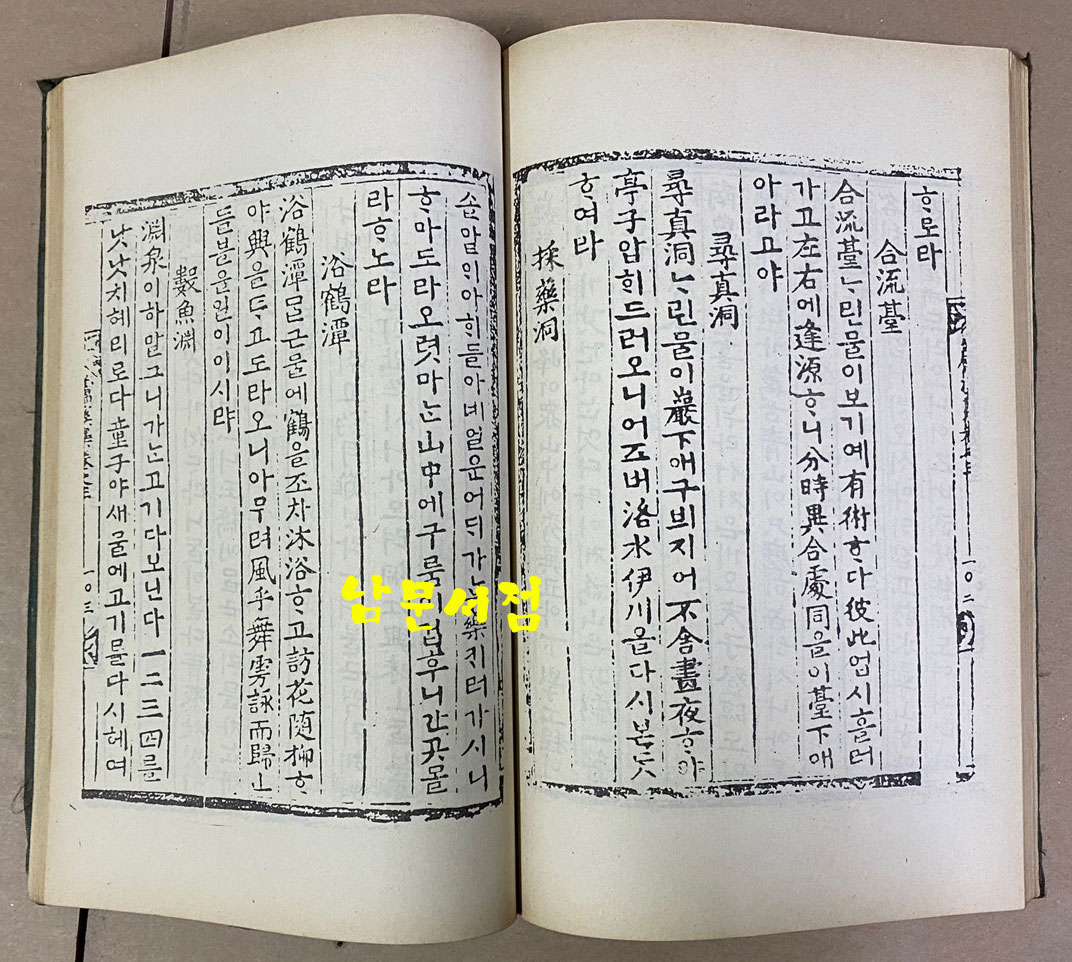 ᄒᆞ로라
合流臺
合流臺ᄂᆞᆫ린물이보기예有術ᄒᆞ다彼此업시흘러
가고左右에逢源ᄒᆞ니分時異合處同을이臺下애
아라고야
尋真洞
尋真洞ᄂᆞ린물이巖下애구븨지어不舍晝夜ᄒᆞ야
亭子압희드러오니어즈버洛水伊川을다시본ᄃᆞᆺ
ᄒᆞ여라
採藥洞
一〇二
솔알ᄋᆡ아ᄒᆡ들아네얼운어ᄃᆡ가뇨藥ᄏᆡ러가시니
ᄒᆞ마도라오련마ᄂᆞᆫ山中에구룸이깁흐니간곳몰
라ᄒᆞ노라
浴鶴潭
浴鶴潭ᄆᆞᆰ근물에鶴을조차沐浴ᄒᆞ고訪花隨柳ᄒᆞ
야興을ᄐᆞ고도라오니아무려風乎舞雩詠而歸ᅟᅵᆫ
들블을일이이시랴
數魚淵
淵泉이하ᄆᆞᆯ그니가ᄂᆞᆫ고기다보ᄂᆡᆫ다一二三四를
낫낫치헤리로다童子야새물에고기를다시헤여
一〇三
남문서점